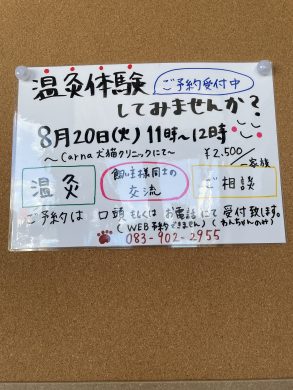 温灸体験 ご予約受付中
してみませんか?
8月20日(火) 11時〜12時
〜Carna犬猫クリニックにて〜 ¥2,500/一家族
温灸 飼主様同士の交流 ご相談
ご予約は 口頭 もしくは お電話にて 受付致します。
(WEB予約できません) (わんちゃんのみ)
083-902-2955